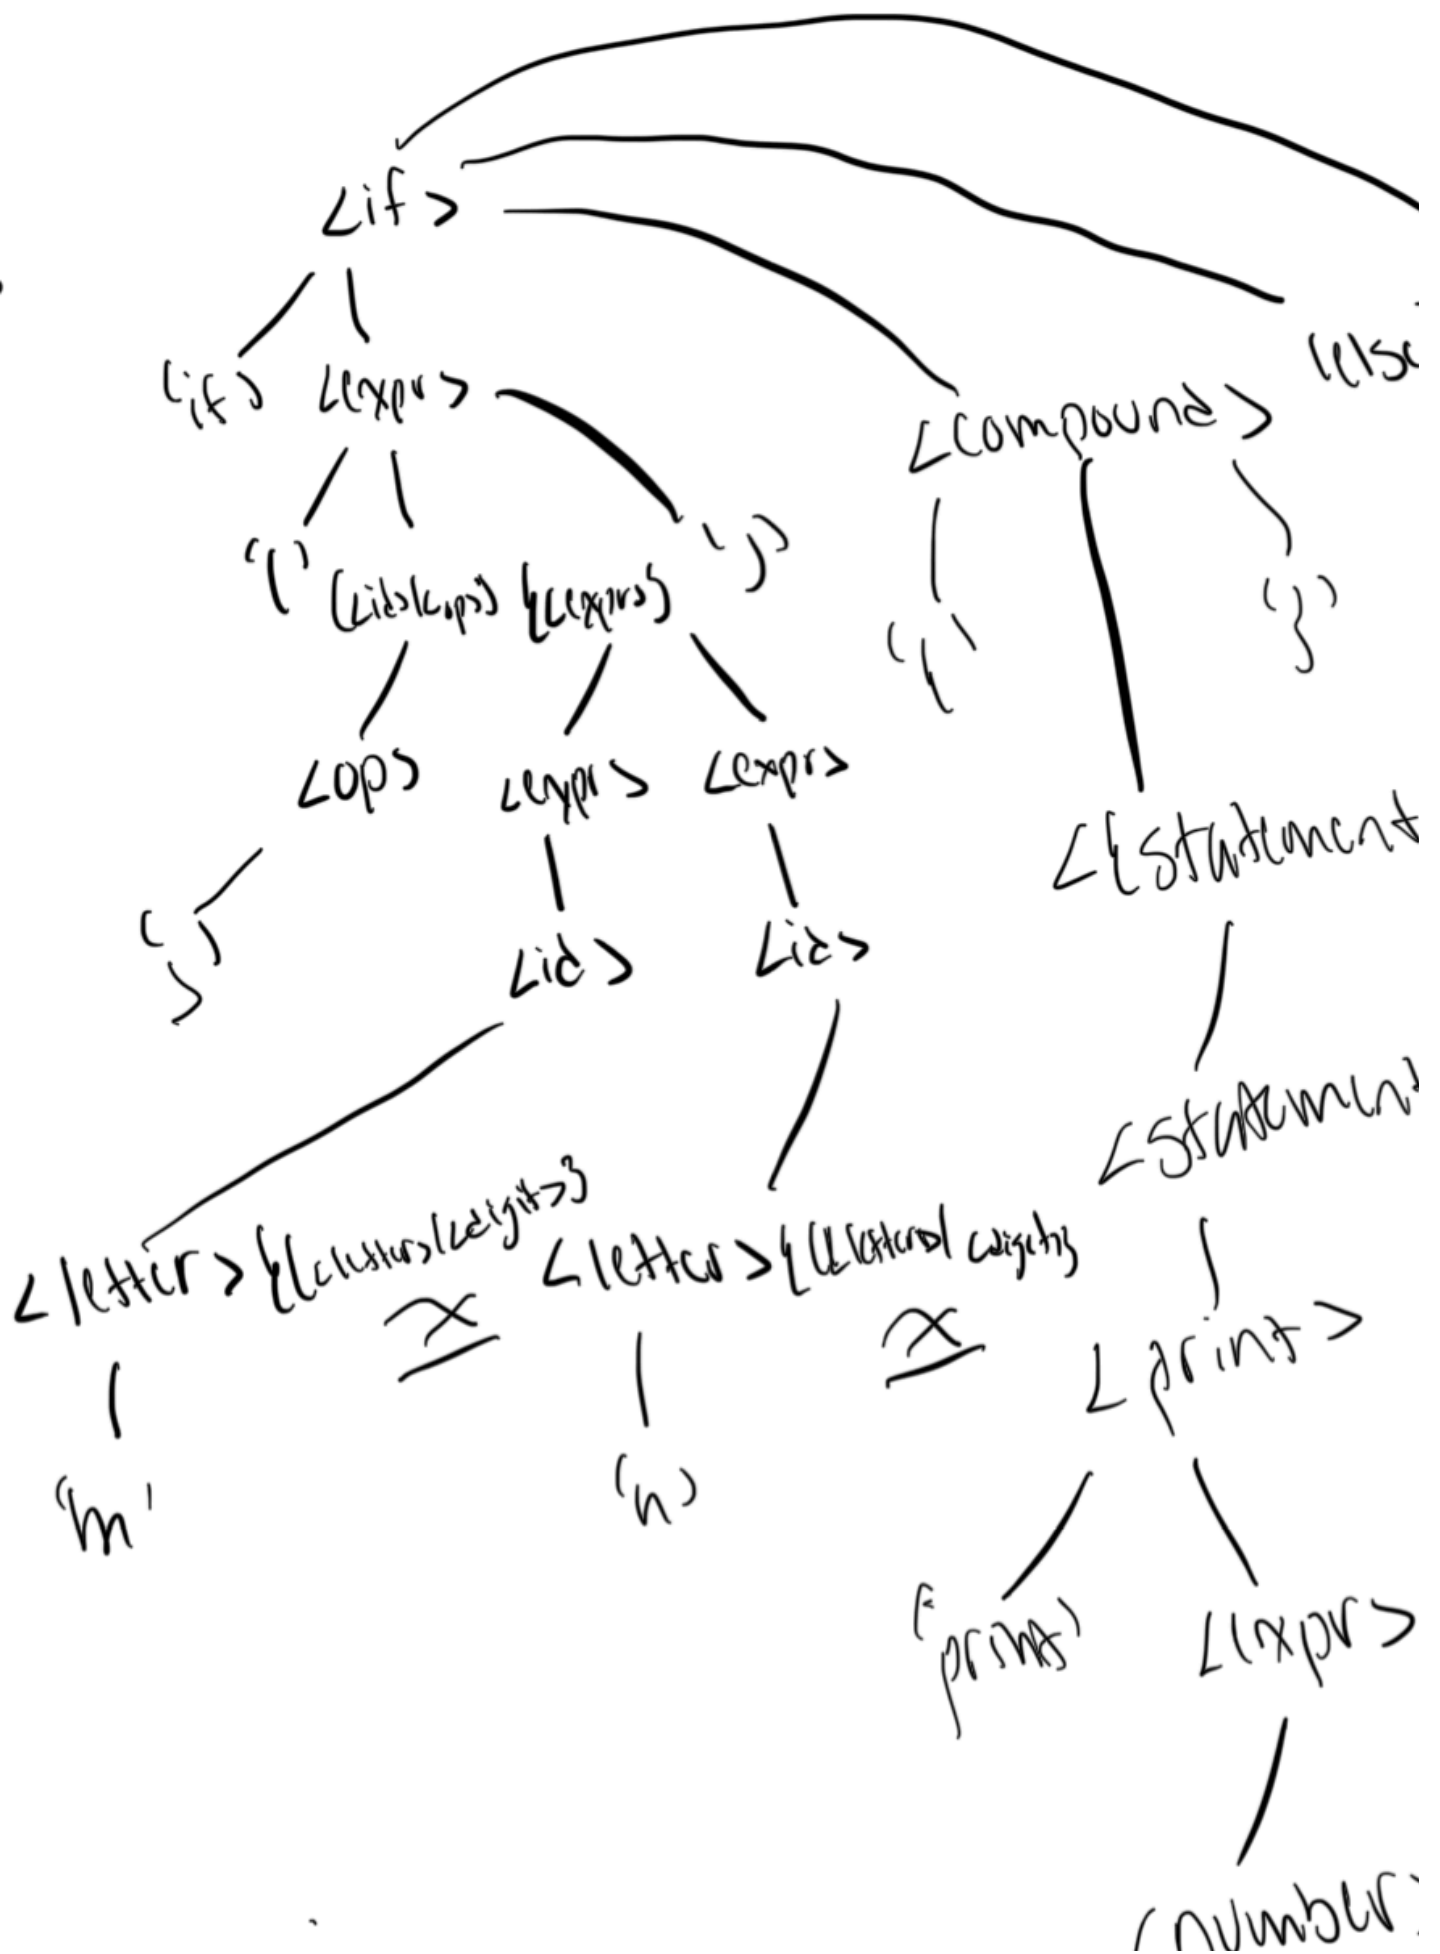 <if>
'if' <expr>
'else
<compound>
'(' (<id>|<op>) {<expr>} ')'
'{' '}'
<op> <expr> <expr>
<{statement
'>'
<id> <id>
<statement
<letter> {(<letter>|<digit>} <letter> {(<letter>|<digit>)}
<print>
'm' 'n'
'print' <expr>
<number>